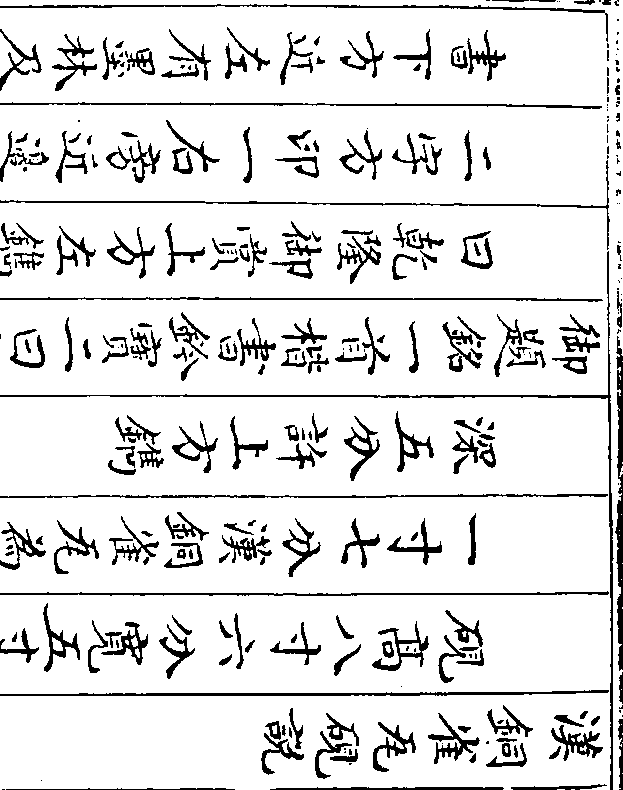 漢銅雀瓦硯説
硯高八寸六分寛五寸
一寸七分漢銅雀瓦爲
深五分許上方鐫
御題銘一首楷書鈐寶二曰
曰乾隆御賞上方左鐫
二字方印一右旁近邊
書下方近左有墨林及